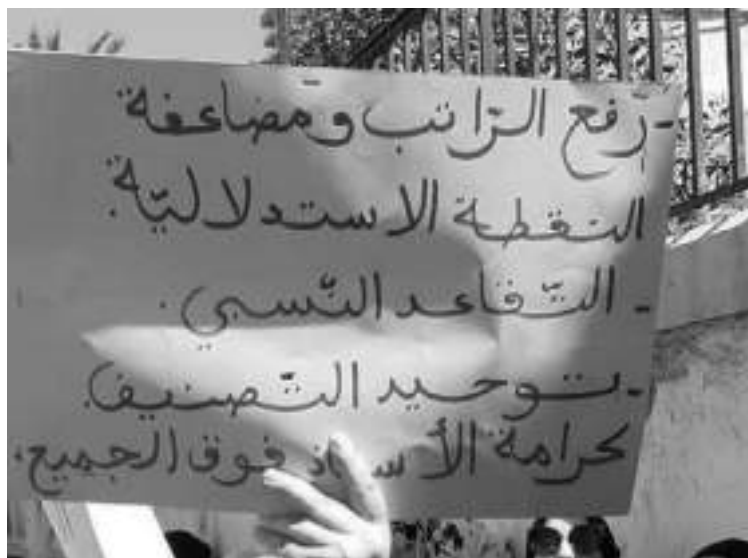 - رفع الرّاتب ومضاعفة
النقطة الاستدلاليّة.
- التّقاعد النّسبي.
- توحيد التّصنيف.
كرامة الأستاذ فوق الجميع.